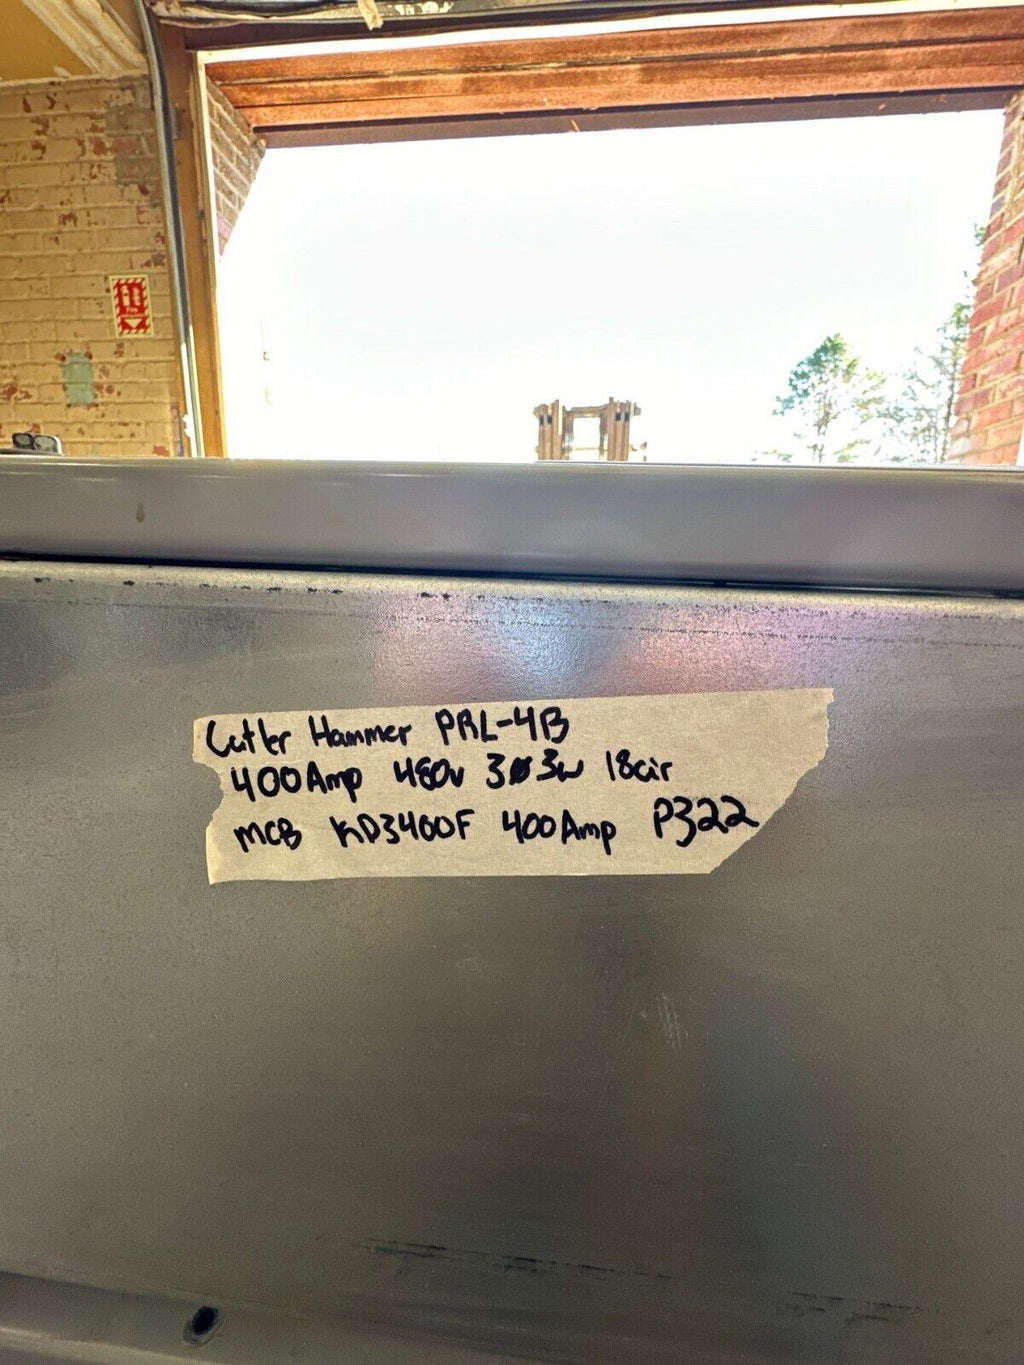 Cutler Hammer PRL-4B
400Amp 480v 3Ø3w 18cir
MCB KD3400F 400Amp P322